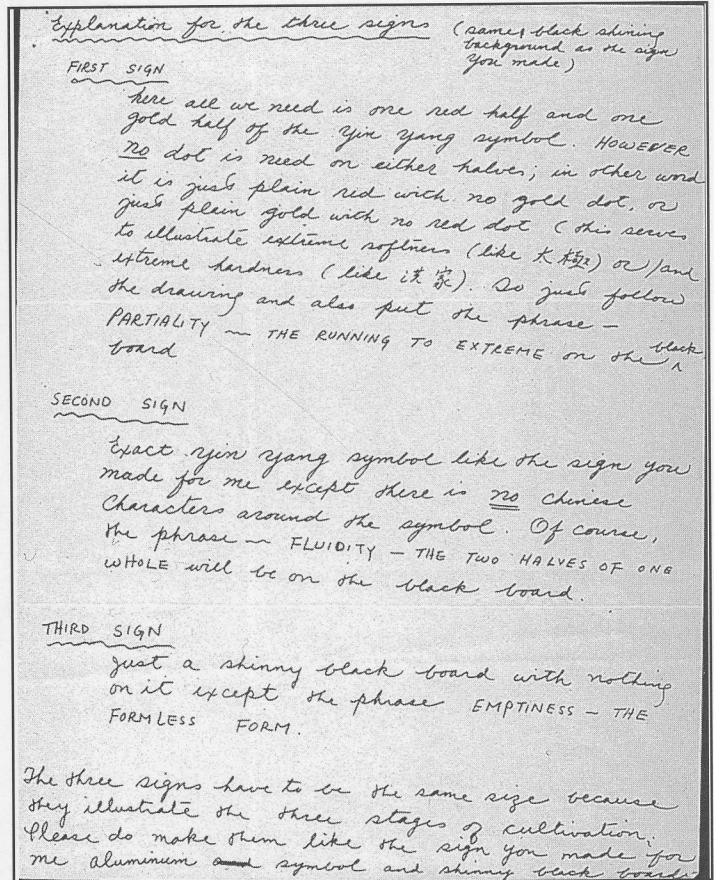 Explanation for the three signs (same, black shining
background as the sign
you made)
FIRST SIGN
here all we need is one red half and one
gold half of the Yin Yang symbol. HOWEVER
no dot is need on either halves; in other word
it is just plain red with no gold dot, or
just plain gold with no red dot (this serves
to illustrate extreme softness (like 太極) or/and
extreme hardness (like 洪家). So just follow
the drawing and also put the phrase —
PARTIALITY — THE RUNNING TO EXTREME on the black
board
SECOND SIGN
Exact Yin Yang symbol like the sign you
made for me except there is no chinese
characters around the symbol. Of course,
the phrase — FLUIDITY — THE TWO HALVES OF ONE
WHOLE will be on the black board.
THIRD SIGN
Just a shinny black board with nothing
on it except the phrase EMPTINESS — THE
FORMLESS FORM.
The three signs have to be the same size because
they illustrate the three stages of cultivation.
Please do make them like the sign you made for
me aluminum symbol and shinny black board.